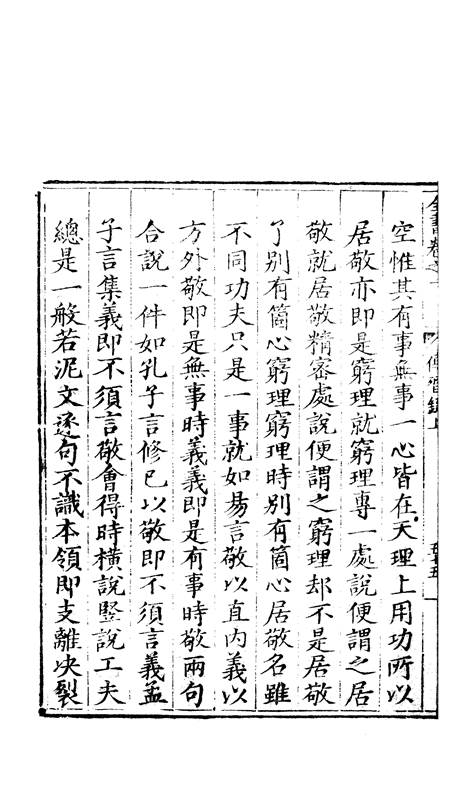 全書卷之一
傳習錄上
空惟其有事無事一心皆在天理上用功所以
居敬亦即是窮理就窮理專一處說便謂之居
敬就居敬精宻處說便謂之窮理却不是居敬
了別有箇心窮理窮理時別有箇心居敬名雖
不同功夫只是一事就如易言敬以直內義以
方外敬即是無事時義義即是有事時敬兩句
合說一件如孔子言修己以敬即不須言義孟
子言集義即不須言敬會得時橫說豎說工夫
總是一般若泥文逐句不識本領即支離决裂